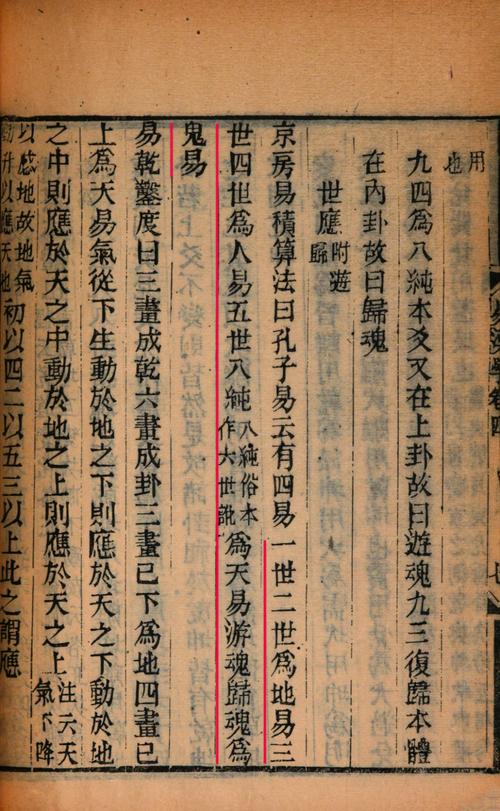 用
也
九四爲八純本爻又在上卦故曰遊魂九三復歸本體
在內卦故曰歸魂
世應附遊歸
京房易積算法曰孔子易云有四易一世二世爲地易三
世四世爲人易五世八純八純俗本作六世訛爲天易游魂歸魂爲
鬼易
易乾鑿度曰三畫成乾六畫成卦三畫已下爲地四畫已
上爲天易氣從下生動於地之下則應於天之下動於地
之中則應於天之中動於地之上則應於天之上注云天氣下降
以感地故地氣動升以應天也初以四二以五三以上此之謂應